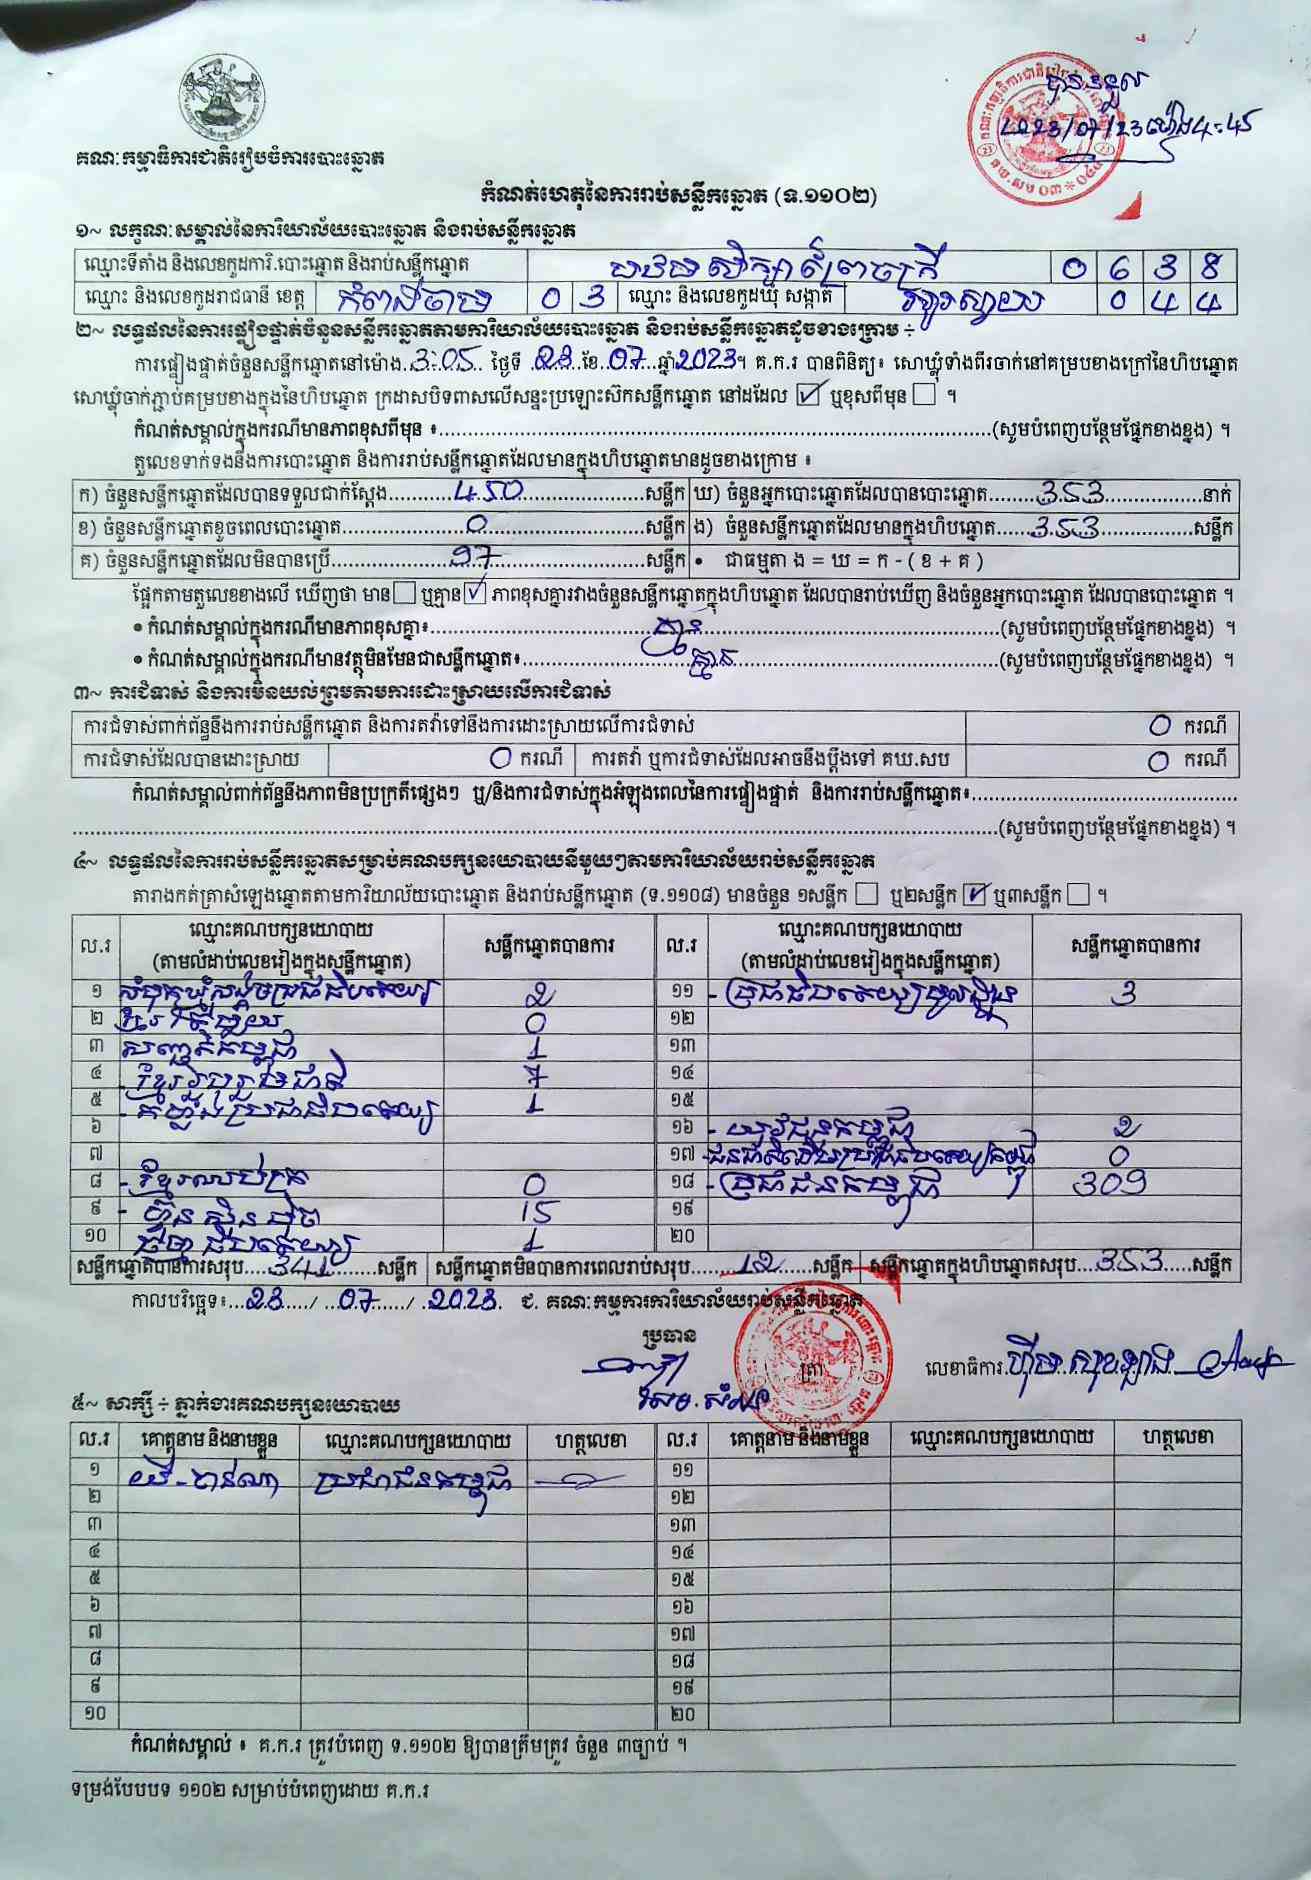 បានទទួល
2023/07/23 ម៉ោង 4:45
គណៈកម្មាធិការជាតិរៀបចំការបោះឆ្នោត
កំណត់ហេតុនៃការរាប់សន្លឹកឆ្នោត (ទ.១១០២)
១~ លក្ខណៈសម្គាល់នៃការិយាល័យបោះឆ្នោត និងរាប់សន្លឹកឆ្នោត
ឈ្មោះទីតាំង និងលេខកូដការិ.បោះឆ្នោត និងរាប់សន្លឹកឆ្នោត បឋមសិក្សាព្រែចគ្រី 0 6 3 8
ឈ្មោះ និងលេខកូដរាជធានី ខេត្ត កំពង់ចាម 0 3 ឈ្មោះ និងលេខកូដឃុំ សង្កាត់ 0 4 4
២~ លទ្ធផលនៃការផ្ទៀងផ្ទាត់ចំនួនសន្លឹកឆ្នោតតាមការិយាល័យបោះឆ្នោត និងរាប់សន្លឹកឆ្នោតដូចខាងក្រោម ÷
ការផ្ទៀងផ្ទាត់ចំនួនសន្លឹកឆ្នោតនៅម៉ោង..3:05.. ថ្ងៃទី ..23..ខែ..07...ឆ្នាំ2023..។ គ.ក.រ បានពិនិត្យ៖ សោឃ្លុំទាំងពីរចាក់នៅគម្របខាងក្រៅនៃហិបឆ្នោត
សោឃ្លុំចាក់ភ្ជាប់គម្របខាងក្នុងនៃហិបឆ្នោត ក្រដាសបិទពាសលើសន្ទះប្រឡោះស៊កសន្លឹកឆ្នោត នៅដដែល ☑ ឬខុសពីមុន ☐ ។
កំណត់សម្គាល់ក្នុងករណីមានភាពខុសពីមុន ៖..........(សូមបំពេញបន្ថែមផ្នែកខាងខ្នង) ។
តួលេខទាក់ទងនឹងការបោះឆ្នោត និងការរាប់សន្លឹកឆ្នោតដែលមានក្នុងហិបឆ្នោតមានដូចខាងក្រោម ៖
ក) ចំនួនសន្លឹកឆ្នោតដែលបានទទួលជាក់ស្តែង..........450..........សន្លឹក ឃ) ចំនួនអ្នកបោះឆ្នោតដែលបានបោះឆ្នោត........353..........នាក់
ខ) ចំនួនសន្លឹកឆ្នោតខូចពេលបោះឆ្នោត..........0..........សន្លឹក ង) ចំនួនសន្លឹកឆ្នោតដែលមានក្នុងហិបឆ្នោត......353..........សន្លឹក
គ) ចំនួនសន្លឹកឆ្នោតដែលមិនបានប្រើ..........97..........សន្លឹក • ជាធម្មតា ង = ឃ = ក - ( ខ + គ )
ផ្អែកតាមតួលេខខាងលើ ឃើញថា មាន☐ ឬគ្មាន☑ ភាពខុសគ្នារវាងចំនួនសន្លឹកឆ្នោតក្នុងហិបឆ្នោត ដែលបានរាប់ឃើញ និងចំនួនអ្នកបោះឆ្នោត ដែលបានបោះឆ្នោត ។
• កំណត់សម្គាល់ក្នុងករណីមានភាពខុសគ្នា៖..........គ្មាន..........(សូមបំពេញបន្ថែមផ្នែកខាងខ្នង) ។
• កំណត់សម្គាល់ក្នុងករណីមានវត្ថុមិនមែនជាសន្លឹកឆ្នោត៖..........គ្មាន..........(សូមបំពេញបន្ថែមផ្នែកខាងខ្នង) ។
៣~ ការជំទាស់ និងការមិនយល់ព្រមតាមការដោះស្រាយលើការជំទាស់
ការជំទាស់ពាក់ព័ន្ធនឹងការរាប់សន្លឹកឆ្នោត និងការតវ៉ាទៅនឹងការដោះស្រាយលើការជំទាស់ 0 ករណី
ការជំទាស់ដែលបានដោះស្រាយ 0 ករណី ការតវ៉ា ឬការជំទាស់ដែលអាចនឹងប្តឹងទៅ គឃ.សប 0 ករណី
កំណត់សម្គាល់ពាក់ព័ន្ធនឹងភាពមិនប្រក្រតីផ្សេងៗ ឬ/និងការជំទាស់ក្នុងអំឡុងពេលនៃការផ្ទៀងផ្ទាត់ និងការរាប់សន្លឹកឆ្នោត៖..........
..........(សូមបំពេញបន្ថែមផ្នែកខាងខ្នង) ។
៤~ លទ្ធផលនៃការរាប់សន្លឹកឆ្នោតសម្រាប់គណបក្សនយោបាយនីមួយៗតាមការិយាល័យរាប់សន្លឹកឆ្នោត
តារាងកត់ត្រាសំឡេងឆ្នោតតាមការិយាល័យបោះឆ្នោត និងរាប់សន្លឹកឆ្នោត (ទ.១១០៨) មានចំនួន ១សន្លឹក ☐ ឬ២សន្លឹក ☑ ឬ៣សន្លឹក ☐ ។
ល.រ ឈ្មោះគណបក្សនយោបាយ (តាមលំដាប់លេខរៀងក្នុងសន្លឹកឆ្នោត) សន្លឹកឆ្នោតបានការ ល.រ ឈ្មោះគណបក្សនយោបាយ (តាមលំដាប់លេខរៀងក្នុងសន្លឹកឆ្នោត) សន្លឹកឆ្នោតបានការ
១ សំបុកឃ្មុំសង្គមប្រជាធិបតេយ្យ 2 ១១ - ប្រជាធិបតេយ្យមូលដ្ឋាន 3
២ 0 ១២
៣ សញ្ជាតិកម្ពុជា 1 ១៣
៤ - ខ្មែររួបរួមជាតិ 7 ១៤
៥ - កម្លាំងប្រជាធិបតេយ្យ 1 ១៥
៦ ១៦ - យុវជនកម្ពុជា 2
៧ ១៧ -ជនជាតិដើមប្រជាធិបតេយ្យកម្ពុជា 0
៨ - ខ្មែរឈប់ក្រ 0 ១៨ - ប្រជាជនកម្ពុជា 309
៩ - ហ៊្វុនស៊ិនប៉ិច 15 ១៩
១០ ធម្មាធិបតេយ្យ 1 ២០
សន្លឹកឆ្នោតបានការសរុប....341........សន្លឹក សន្លឹកឆ្នោតមិនបានការពេលរាប់សរុប........12......សន្លឹក សន្លឹកឆ្នោតក្នុងហិបឆ្នោតសរុប...353.....សន្លឹក
កាលបរិច្ឆេទ៖...23...../ ..07...../ .2023. ជ. គណៈកម្មការការិយាល័យរាប់សន្លឹកឆ្នោត
ប្រធាន
ត្រា
លេខាធិការ
៥~ សាក្សី ÷ ភ្នាក់ងារគណបក្សនយោបាយ
ល.រ គោត្តនាម និងនាមខ្លួន ឈ្មោះគណបក្សនយោបាយ ហត្ថលេខា ល.រ គោត្តនាម និងនាមខ្លួន ឈ្មោះគណបក្សនយោបាយ ហត្ថលេខា
១ ប្រជាជនកម្ពុជា ១១
២ ១២
៣ ១៣
៤ ១៤
៥ ១៥
៦ ១៦
៧ ១៧
៨ ១៨
៩ ១៩
១០ ២០
កំណត់សម្គាល់ ៖ គ.ក.រ ត្រូវបំពេញ ទ.១១០២ ឱ្យបានត្រឹមត្រូវ ចំនួន ៣ច្បាប់ ។
ទម្រង់បែបបទ ១១០២ សម្រាប់បំពេញដោយ គ.ក.រ